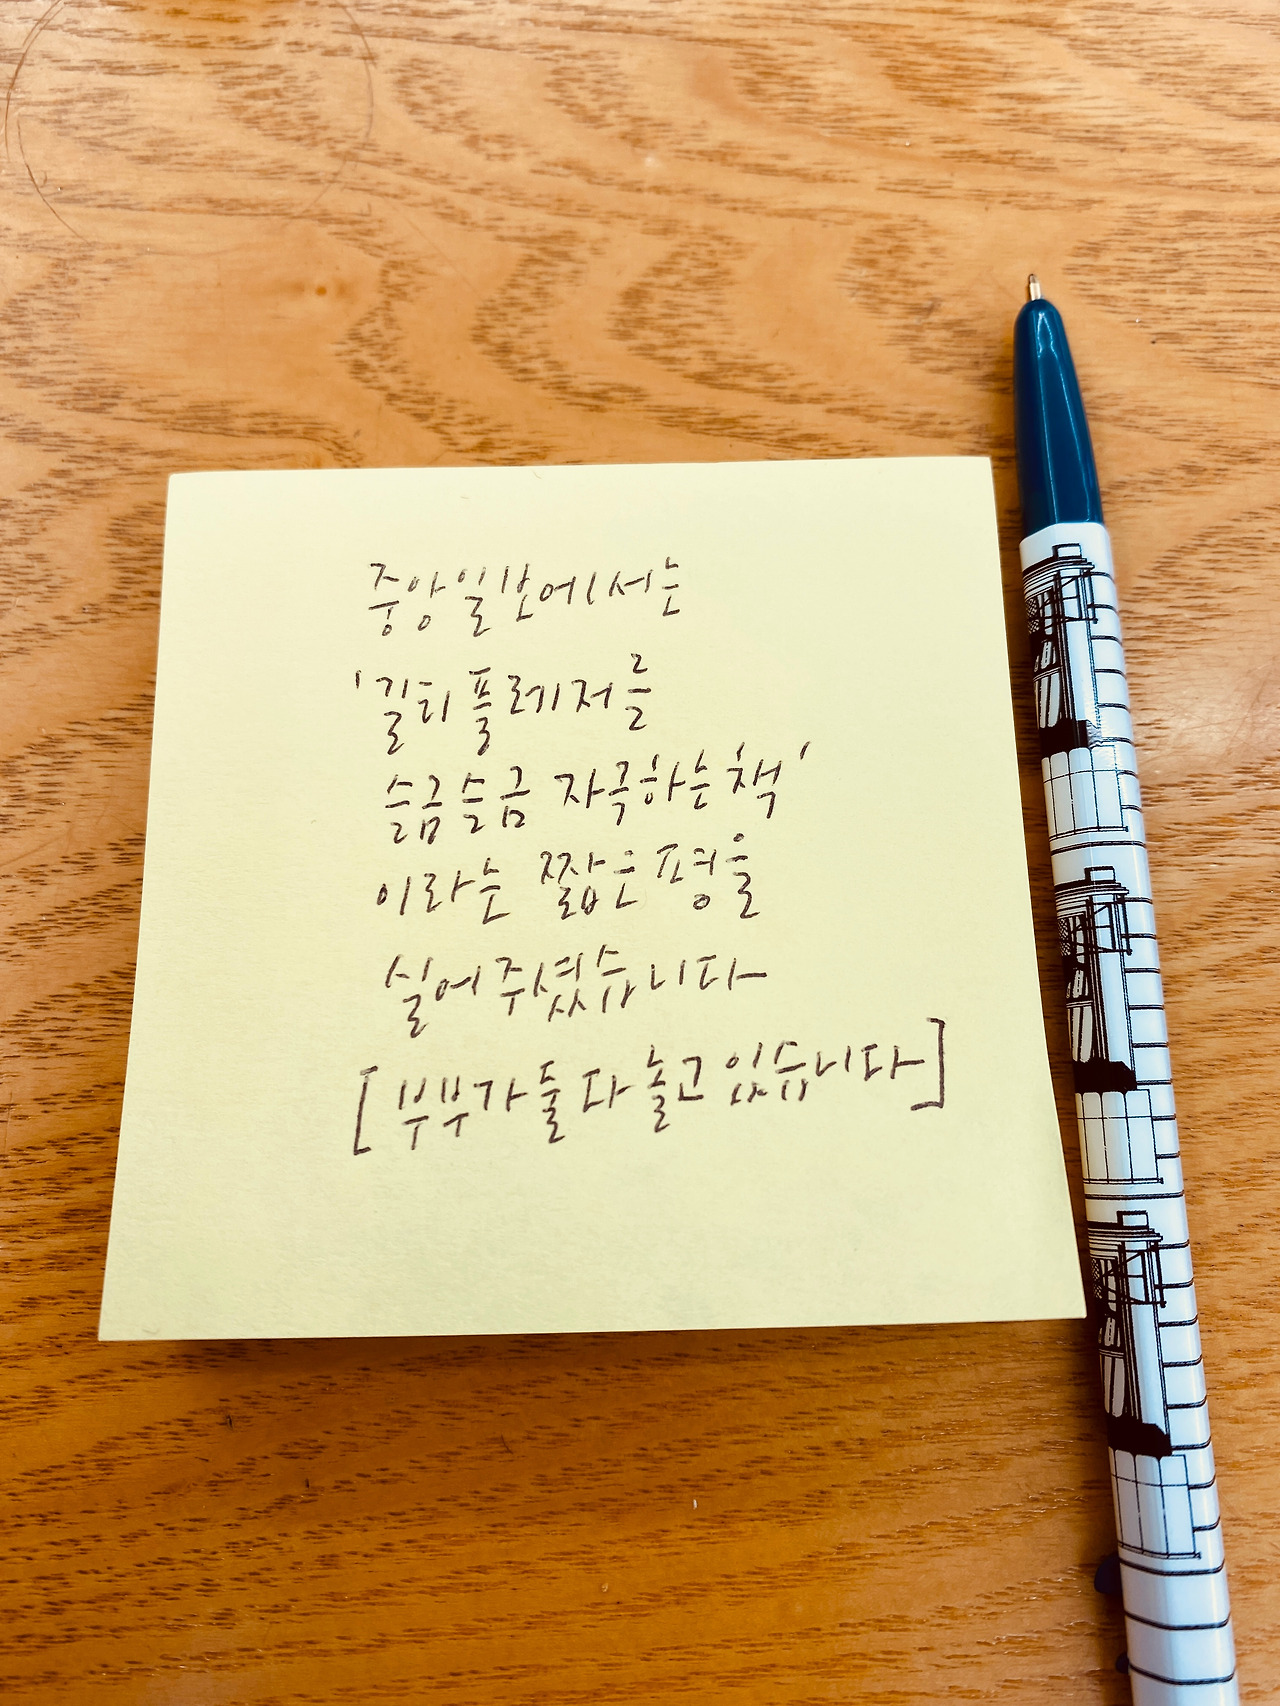 중앙일보에서는
'길티플레저를
슬금슬금 자극하는 책'
이라는 짧은 평을
실어주셨습니다
[부부가 둘 다 놀고 있습니다]